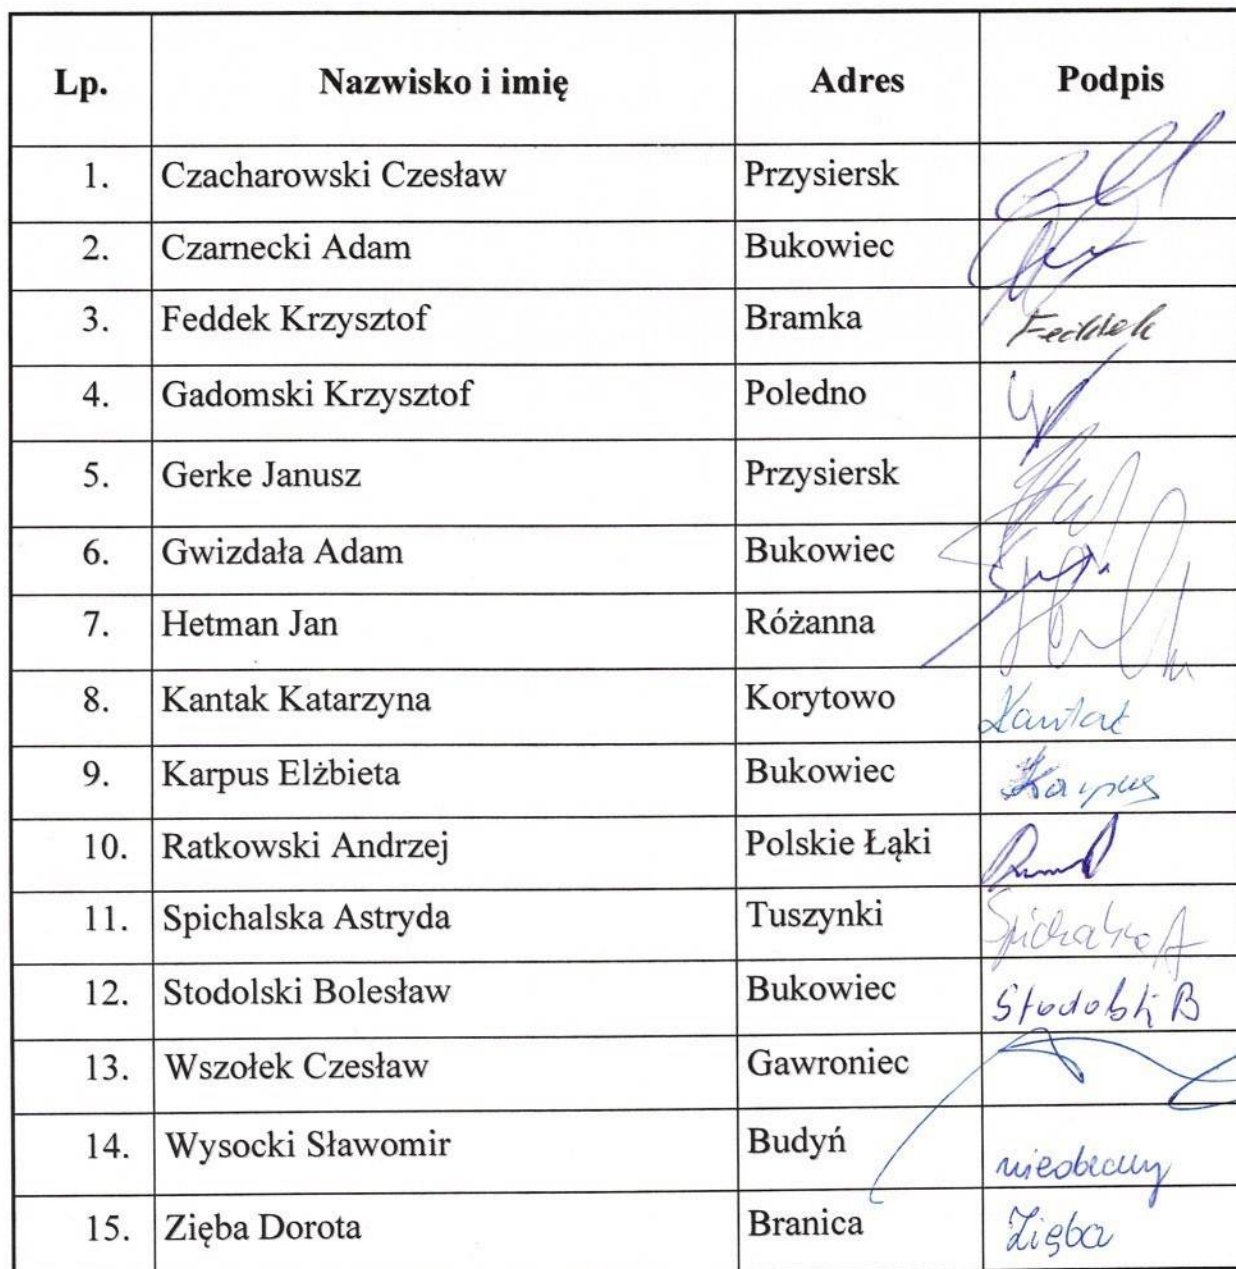 Lp. Nazwisko i imię Adres Podpis
1. Czacharowski Czesław Przysiersk
2. Czarnecki Adam Bukowiec
3. Feddek Krzysztof Bramka Feddek
4. Gadomski Krzysztof Poledno
5. Gerke Janusz Przysiersk
6. Gwizdała Adam Bukowiec
7. Hetman Jan Różanna
8. Kantak Katarzyna Korytowo Kantak
9. Karpus Elżbieta Bukowiec Karpus
10. Ratkowski Andrzej Polskie Łąki
11. Spichalska Astryda Tuszynki Spichalska A
12. Stodolski Bolesław Bukowiec Stodolski B
13. Wszołek Czesław Gawroniec
14. Wysocki Sławomir Budyń nieobecny
15. Zięba Dorota Branica Zięba